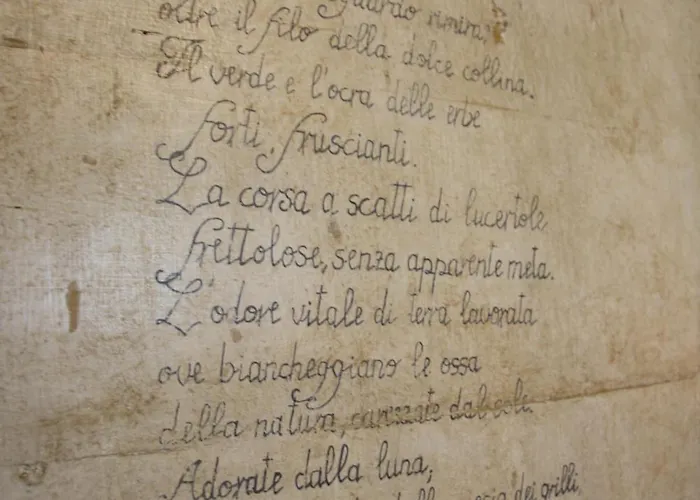 sguardo rimira,
oltre il filo della dolce collina.
Il verde e l'ocra delle erbe
forti, fruscianti.
La corsa a scatti di lucertole
frettolose, senza apparente meta.
L'odore vitale di terra lavorata
ove biancheggiano le ossa
della natura, carezzate dal sole.
Adorate dalla luna,
dei grilli